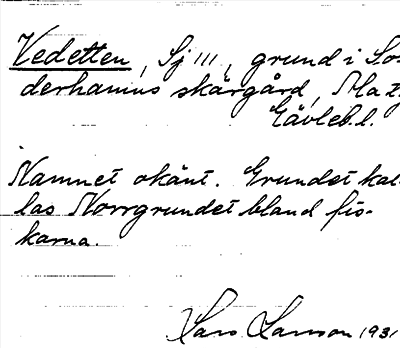 Vedetten, Sj III, grund i So-
derhamns skärgård, Mag,
Gävleb. l.
Namnet okänt. Grundet kal-
las Norrgrundet bland fis-
karna.
Lars Larsson 1931